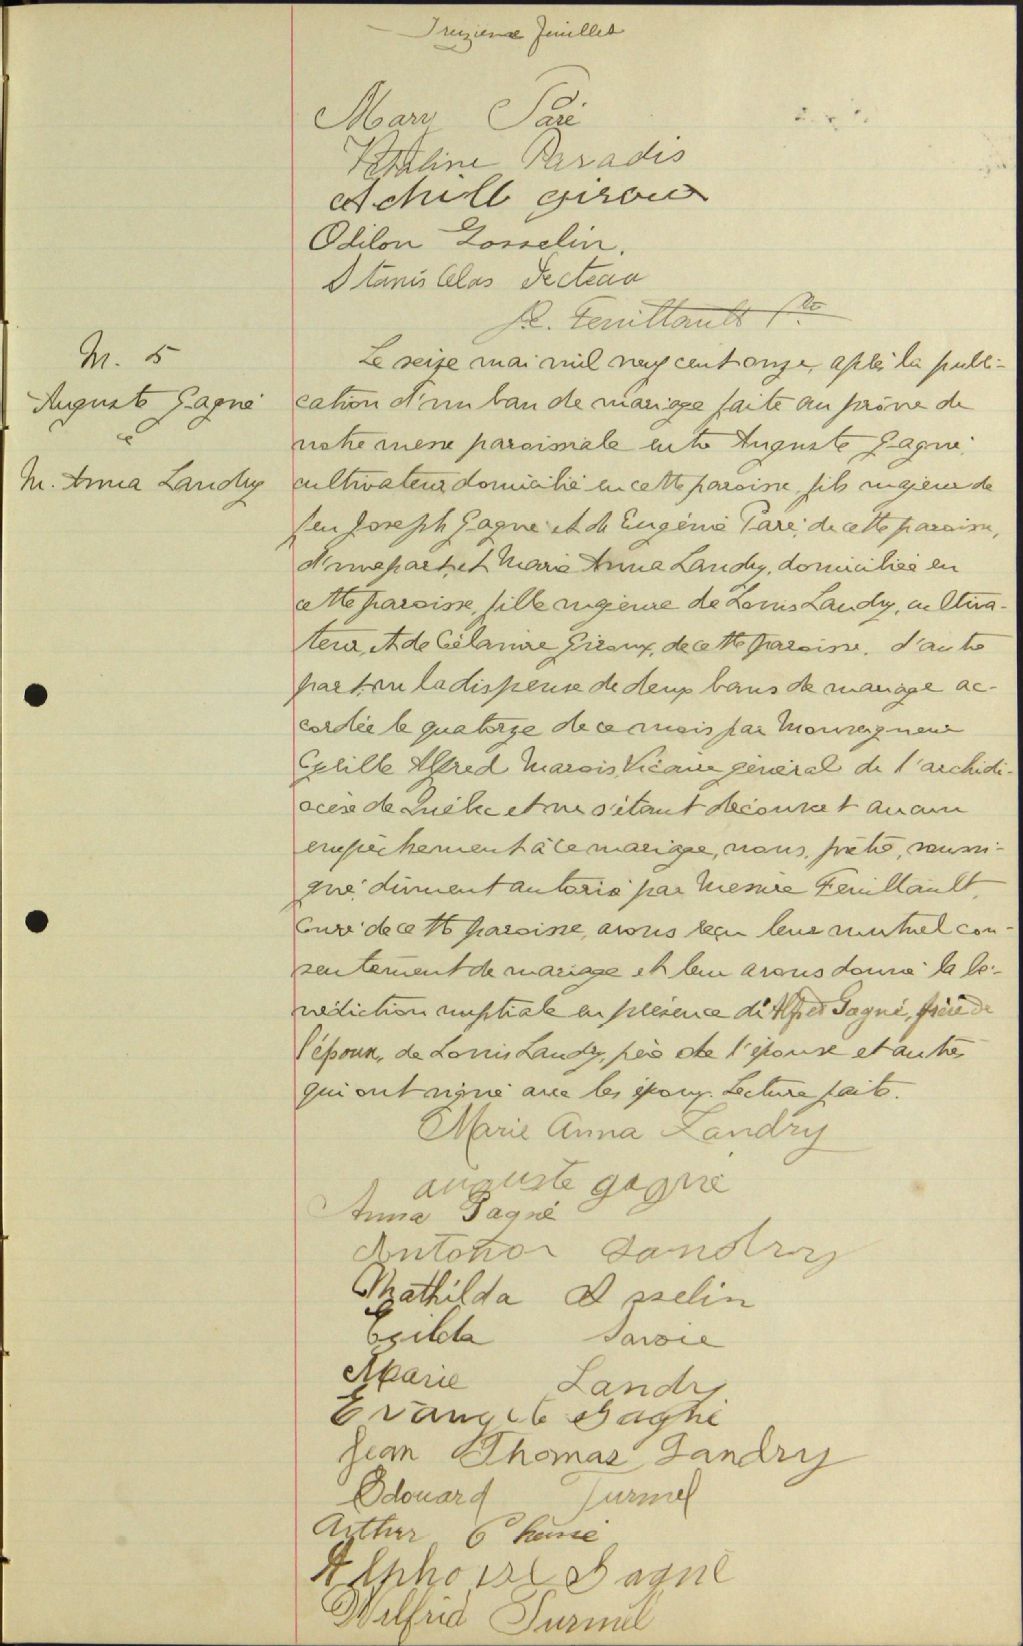 Treizieme feuillet
Mary Paré
Paradis
Achill giroux
Odilon Gosselin.
Stanislas Fecteau
Feuiltault Ptre
M. 5
Auguste Gagné
&
M. Anna Landry
Le seize mai mil neuf cent onze, après la publi-
cation d'un ban de mariage faite au prône de
notre messe paroissiale entre Auguste Gagné,
cultivateur domicilié en cette paroisse, fils majeur de
feu Joseph Gagné et de Eugénie Paré, de cette paroisse,
d'une part, et Marie Anna Landry, domiciliée en
cette paroisse, fille majeure de Louis Landry, cultiva-
teur, et de Célanire Giroux, de cette paroisse, d'autre
part, vu la dispense de deux bans de mariage ac-
cordée le quatorze de ce mois par Monseigneur
Cyrille Alfred Marois, Vicaire général de l'archidi-
ocèse de Québec et ne s'étant découvert aucun
empêchement à ce mariage, nous, prêtre, soussi-
gné, dûment autorisé par Messire Feuiltault,
Curé de cette paroisse, avons reçu leur mutuel con-
sentement de mariage et leur avons donné la bé-
nédiction nuptiale en présence d'Alfred Gagné, frère de
l'époux, de Louis Landry, père de l'épouse et autres
qui ont signé avec les époux. Lecture faite.
Marie Anna Landry
auguste gagné
Anna Gagné
Antonor Landry
Mathilda Asselin
Exilda Savoie
Marie Landry
Evangeliste Gagné
Jean Thomas Landry
Edouard Turmel
Arthur
Alphonse Gagné
Wilfrid Turmel